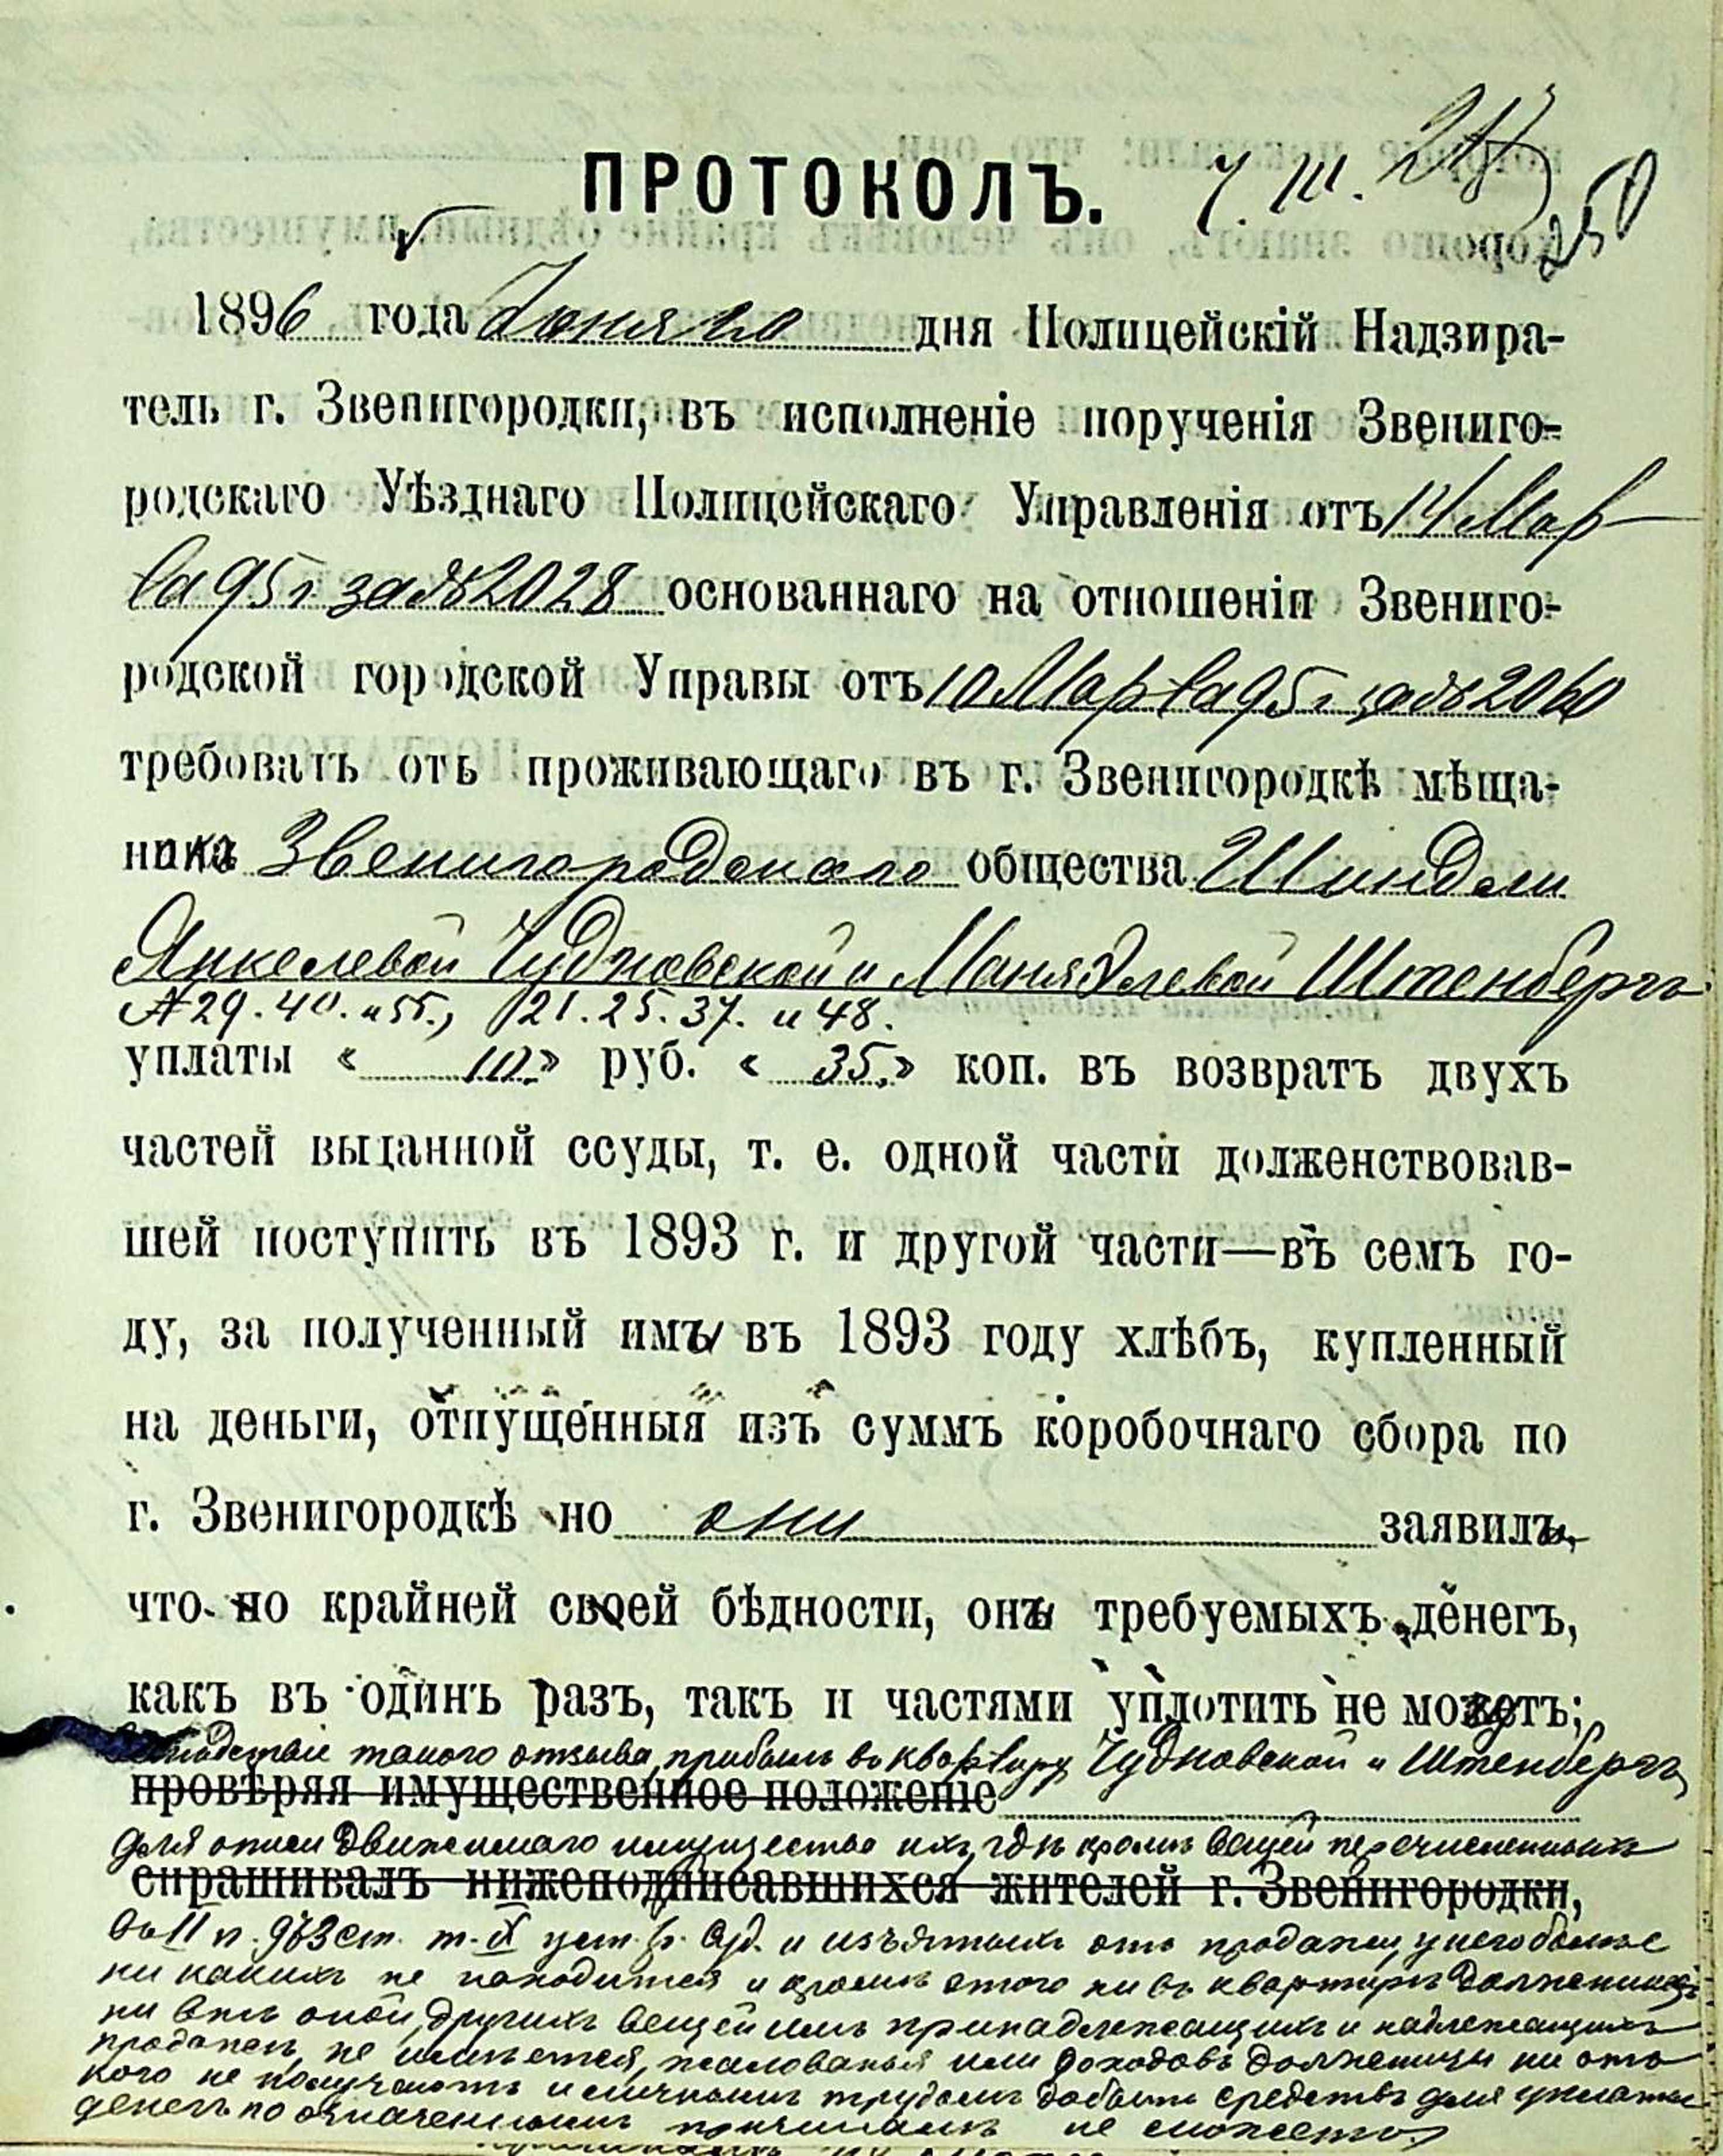 ПРОТОКОЛЪ. 7. III. 250
1896 года Іюня 20 дня Полицейскій Надзира-
тель г. Звенигородки, въ исполненіе порученія Звениго-
родскаго Уѣзднаго Полицейскаго Управленія отъ 14 Мар
та 95 г. за № 2028 основаннаго на отношеніи Звениго-
родской городской Управы отъ 10 Марта 95 г за № 2060
требовать отъ проживающаго въ г. Звенигородкѣ мѣща-
ника Звенигородскаго общества Шиндли
Янкелевой Чудновской и Маня Элевой Штенбергъ
А 29. 40. и 55., 21. 25. 37. и 48.
уплаты « 10.» руб. « 35.» коп. въ возвратъ двухъ
частей выданной ссуды, т. е. одной части долженствовав-
шей поступить въ 1893 г. и другой части—въ семъ го-
ду, за полученный имъ въ 1893 году хлѣбъ, купленный
на деньги, отпущенныя изъ суммъ коробочнаго сбора по
г. Звенигородкѣ но они заявилы,
что по крайней своей бѣдности, оны требуемыхъ денегъ,
какъ въ одинъ разъ, такъ и частями уплотить не могутъ;
вслѣдствіе такого отзыва, прибылъ въ квартиру Чудновской и Штенбергъ
провѣряя имущественное положеніе
для описи движимаго имущества ихъ, гдѣ кромѣ вещей перечисленныхъ
спрашивалъ нижеподписавшихся жителей г. Звенигородки,
въ II п. 973 ст. т. X уст. гр. суд. и изъятыхъ отъ продажи, у него больше
ни какихъ не находится и кромѣ этого ни въ квартирѣ должницъ
ни внѣ оной, другихъ вещей имъ принадлежащихъ и надлежащихъ
продажѣ, не имѣется, жалованья или доходовъ должницы ни отъ
кого не получаютъ и личнымъ трудомъ добыть средствъ для уплаты
денегъ по означеннымъ причинамъ не можетъ